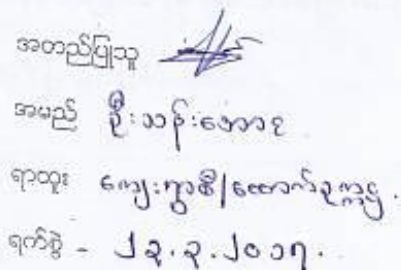 အတည်ပြုသူ
အမည် ဦးသန်းအောင်
ရာထူး ကျေးရွာစီ/ထောက်ဥက္ကဋ္ဌ.
ရက်စွဲ - ၂၃.၃.၂၀၁၇.